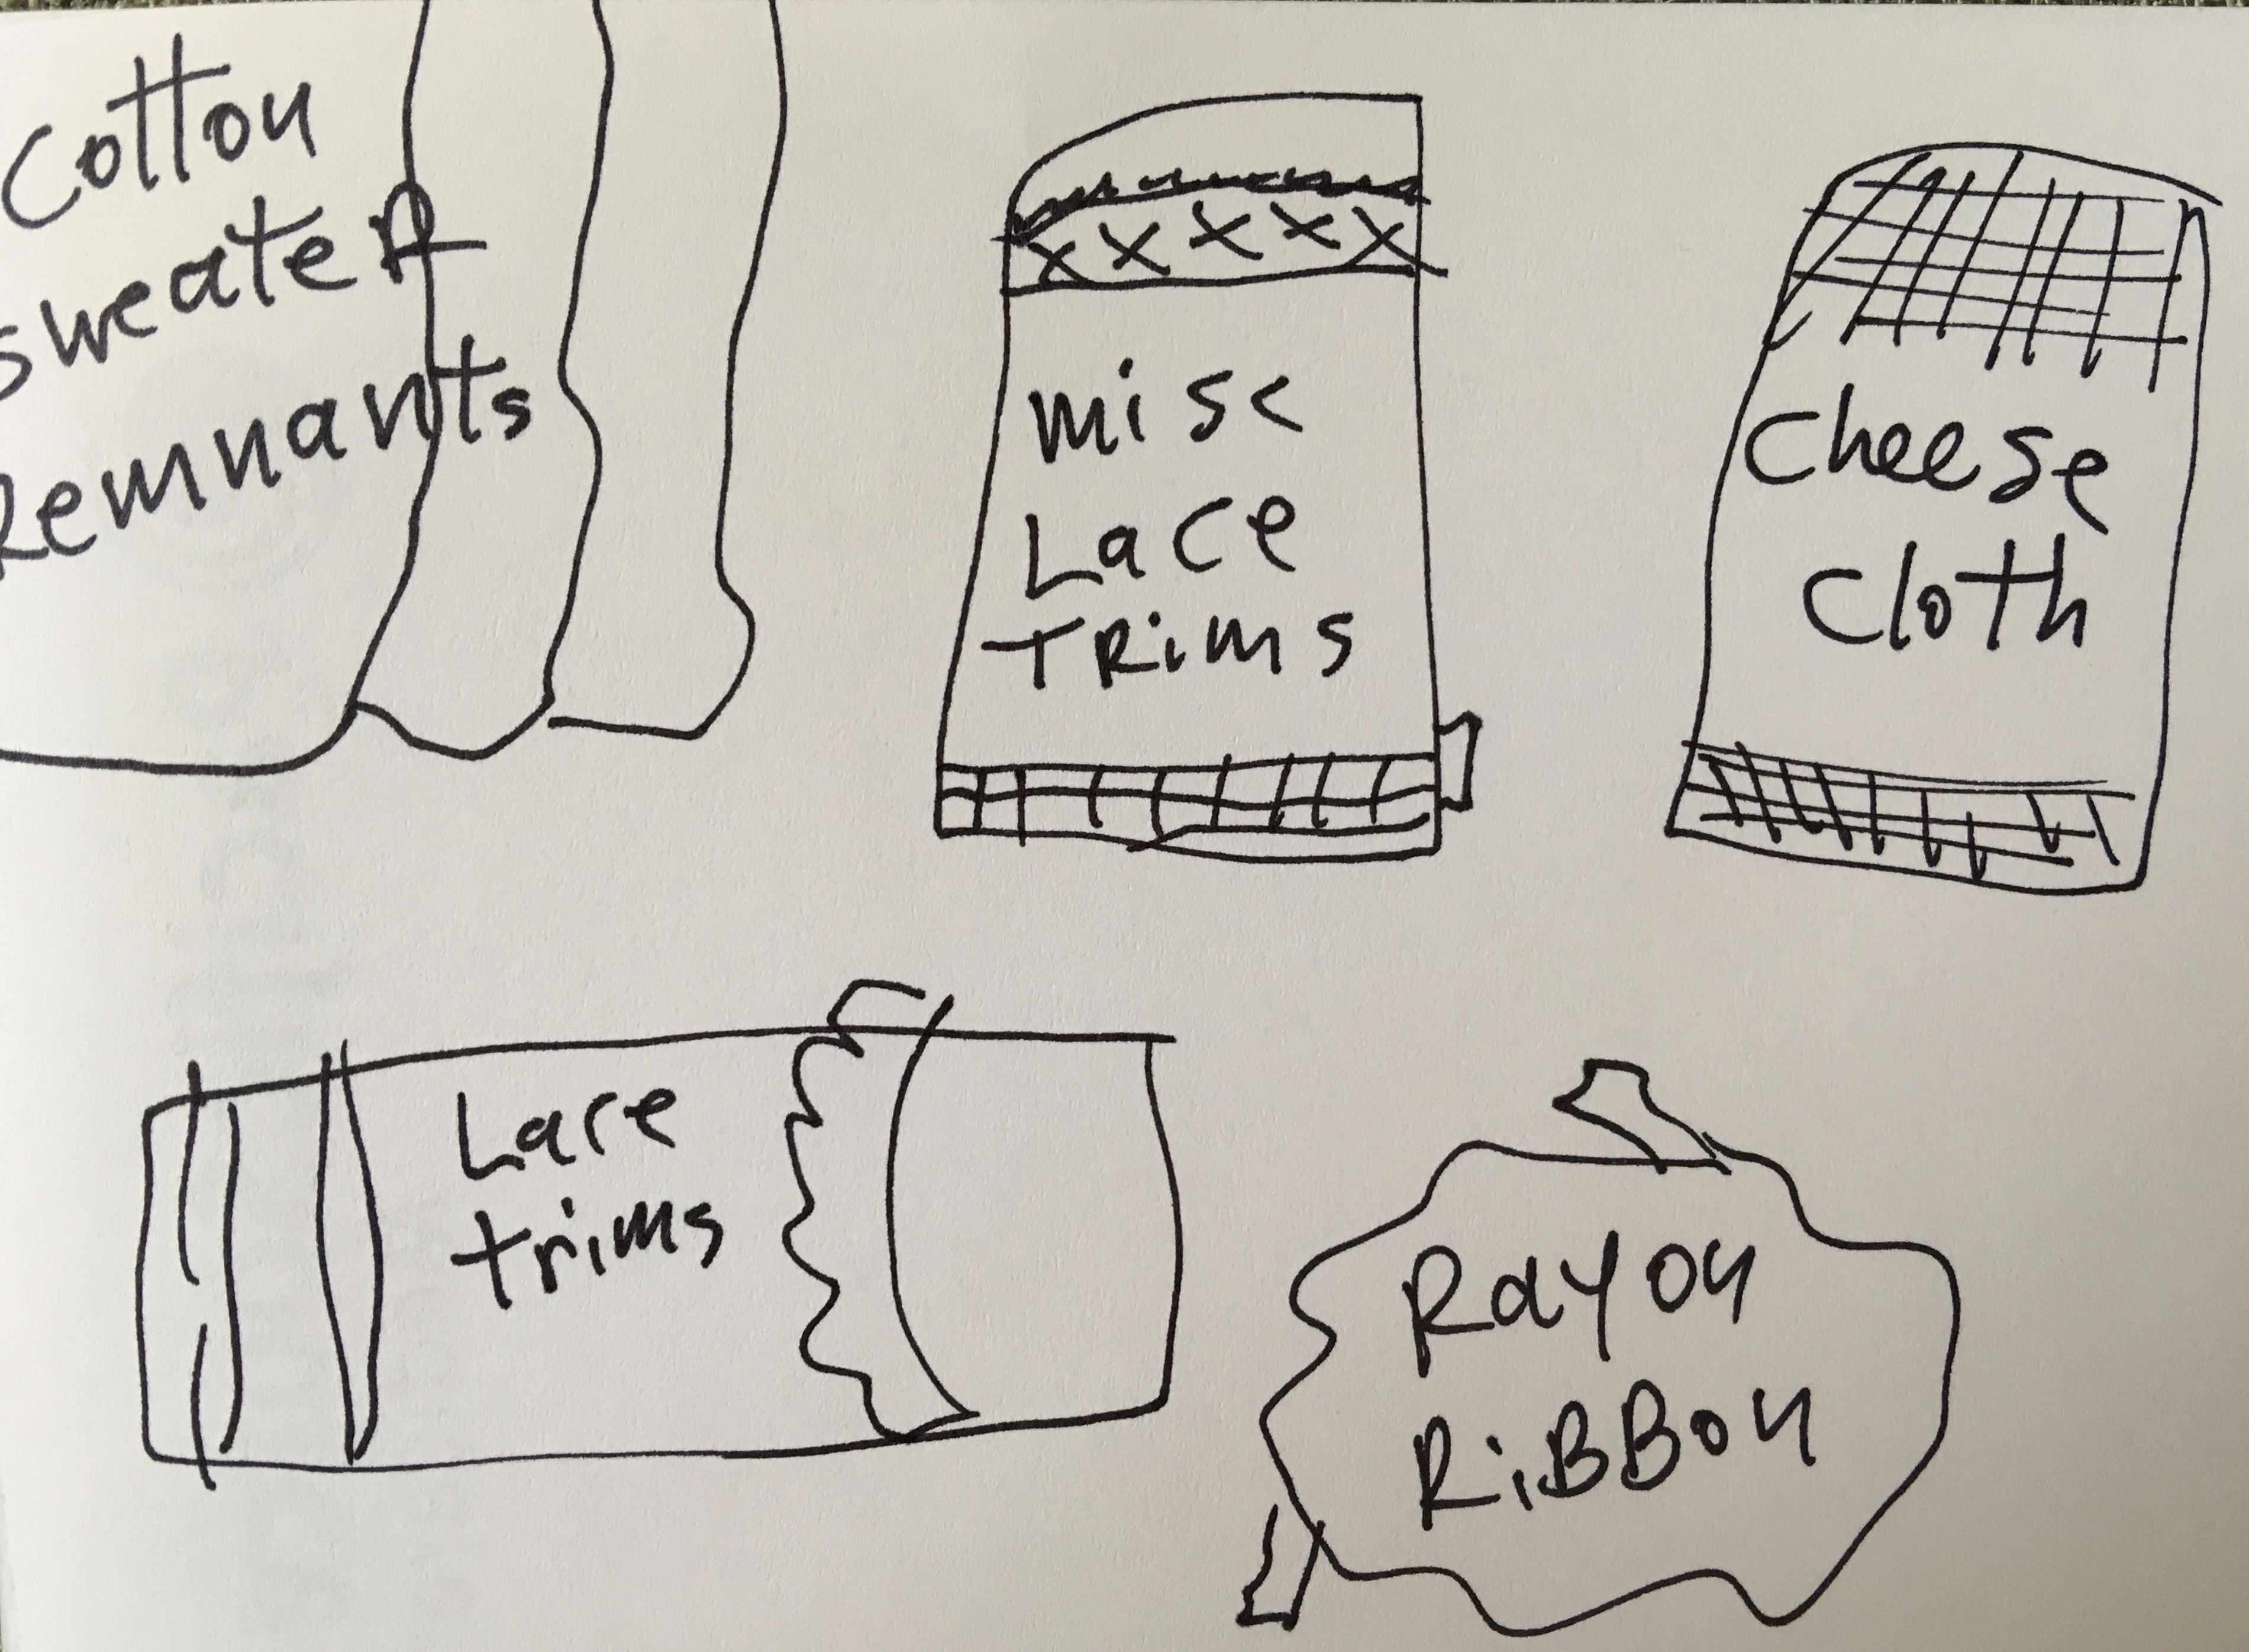 Cotton
sweater
Remnants
misc
Lace
TRims
Cheese
Cloth
Lace
trims
Rayon
RiBBon